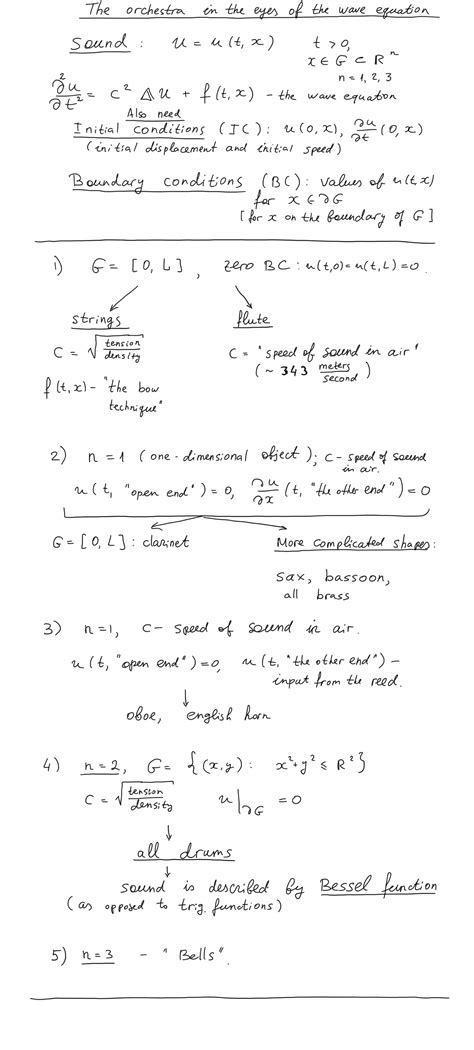 The orchestra in the eyes of the wave equation
Sound : u = u(t, x) t > 0,
x ∈ G ⊂ R^n
n = 1, 2, 3
∂²u/∂t² = c² Δu + f(t, x) - the wave equation
Also need
Initial conditions (IC): u(0, x), ∂u/∂t (0, x)
(initial displacement and initial speed)
Boundary conditions (BC): values of u(t, x)
for x ∈ ∂G
[for x on the boundary of G]
1) G = [0, L], zero BC: u(t,0) = u(t, L) = 0.
strings flute
c = √(tension/density) c = "speed of sound in air"
(~ 343 meters/second)
f(t, x) - "the bow
technique"
2) n = 1 (one-dimensional object); c - speed of sound
in air.
u(t, "open end") = 0, ∂u/∂x (t, "the other end") = 0
G = [0, L]: clarinet More complicated shapes:
sax, bassoon,
all brass
3) n = 1, c - speed of sound in air.
u(t, "open end") = 0, u(t, "the other end") -
input from the reed.
oboe, english horn
4) n = 2, G = {(x, y): x² + y² ≤ R²}
c = √(tension/density) u|∂G = 0
all drums
sound is described by Bessel function
(as opposed to trig. functions)
5) n = 3 - "Bells".